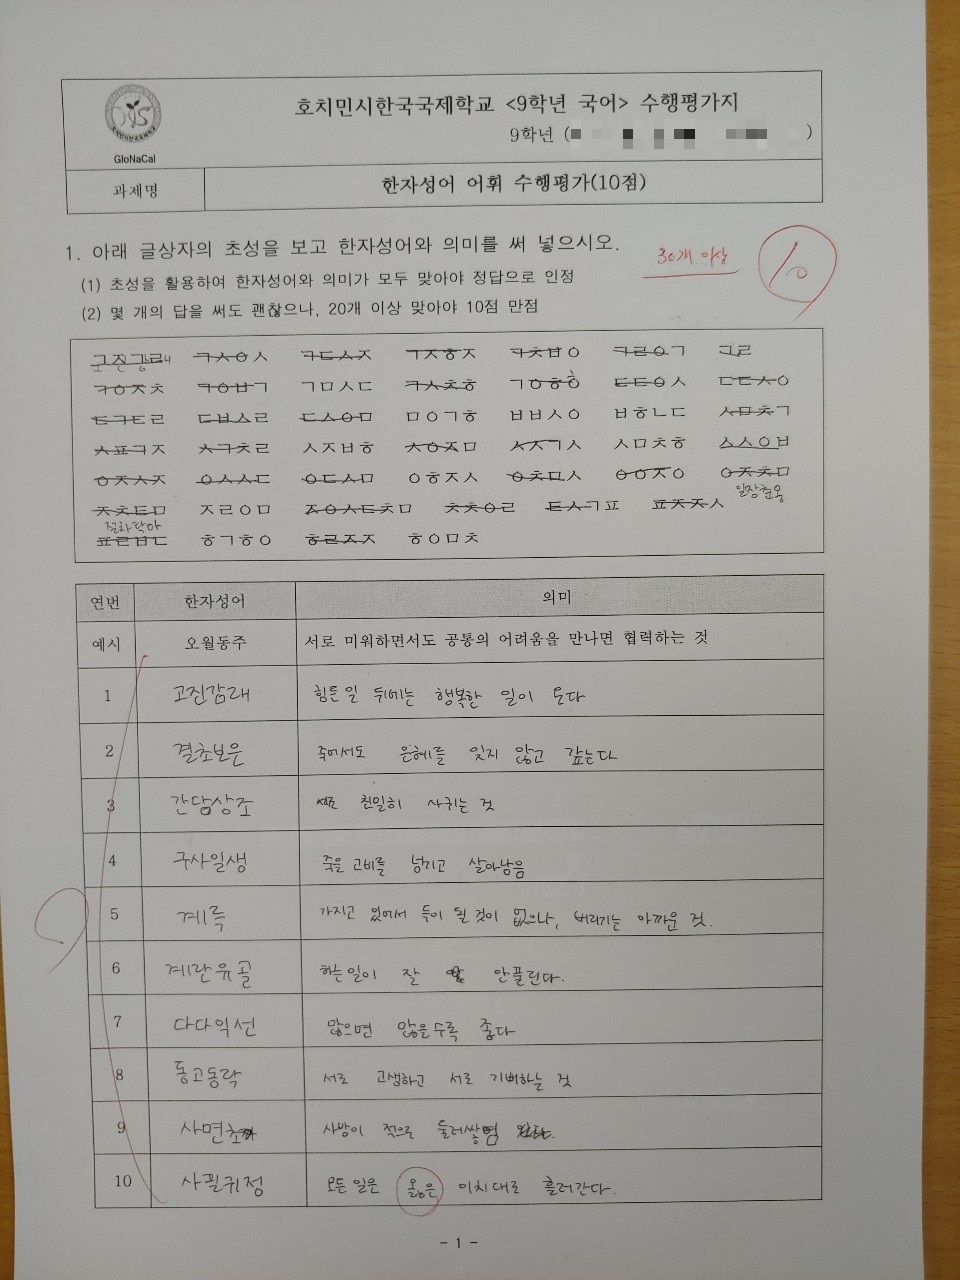 호치민시한국국제학교 <9학년 국어> 수행평가지
9학년 ( )
GloNaCal
과제명 한자성어 어휘 수행평가(10점)
1. 아래 글상자의 초성을 보고 한자성어와 의미를 써 넣으시오.
30개 이상
10
(1) 초성을 활용하여 한자성어와 의미가 모두 맞아야 정답으로 인정
(2) 몇 개의 답을 써도 괜찮으나, 20개 이상 맞아야 10점 만점
ㄱㅅㅇㅅ ㄱㄷㅅㅈ ㄱㅈㅎㅈ ㄱㅊㅂㅇ ㄱㄹㅇㄱ ㄱㄹ
ㄱㅇㅈㅊ ㄱㅇㅂㄱ ㄱㅁㅅㄷ ㄱㅅㅊㅎ ㄱㅇㅎㅎ ㄷㄷㅇㅅ ㄷㄷㅅㅇ
ㄷㄱㄷㄹ ㄷㅂㅅㄹ ㄷㅅㅇㅁ ㅁㅇㄱㅎ ㅂㅂㅅㅇ ㅂㅎㄴㄷ ㅅㅁㅊㄱ
ㅅㅍㄱㅈ ㅅㄱㅊㄹ ㅅㅈㅂㅎ ㅅㅇㅈㅁ ㅅㅈㄱㅅ ㅅㅁㅊㅎ ㅅㅅㅇㅂ
ㅇㅈㅅㅈ ㅇㅅㅅㄷ ㅇㄷㅅㅁ ㅇㅎㅈㅅ ㅇㅊㅁㅅ ㅇㅇㅈㅇ ㅇㅈㅊㅁ
일장춘몽
ㅈㅊㅌㅁ ㅈㄹㅇㅁ ㅈㅇㅅㅌㅊㅁ ㅊㅊㅇㄹ ㅌㅅㄱㅍ ㅍㅈㅈㅅ
절차탁마
ㅍㄹㅂㄷ ㅎㄱㅎㅇ ㅎㄹㅈㅈ ㅎㅇㅁㅊ
연번 한자성어 의미
예시 오월동주 서로 미워하면서도 공통의 어려움을 만나면 협력하는 것
1 고진감래 힘든일 뒤에는 행복한 일이 온다
2 결초보은 죽어서도 은혜를 잊지 않고 갚는다
3 간담상조 서로 친밀히 사귀는 것
4 구사일생 죽을 고비를 넘기고 살아남음
5 계륵 가지고 있어서 득이 될 것이 없으나, 버리기는 아까운 것.
6 계란유골 하는일이 잘 안풀린다.
7 다다익선 많으면 많을수록 좋다
8 동고동락 서로 고생하고 서로 기뻐하는 것
9 사면초가 사방이 적으로 둘러쌓여 있다.
10 사필귀정 모든 일은 옳은 이치대로 흘러간다.
- 1 -